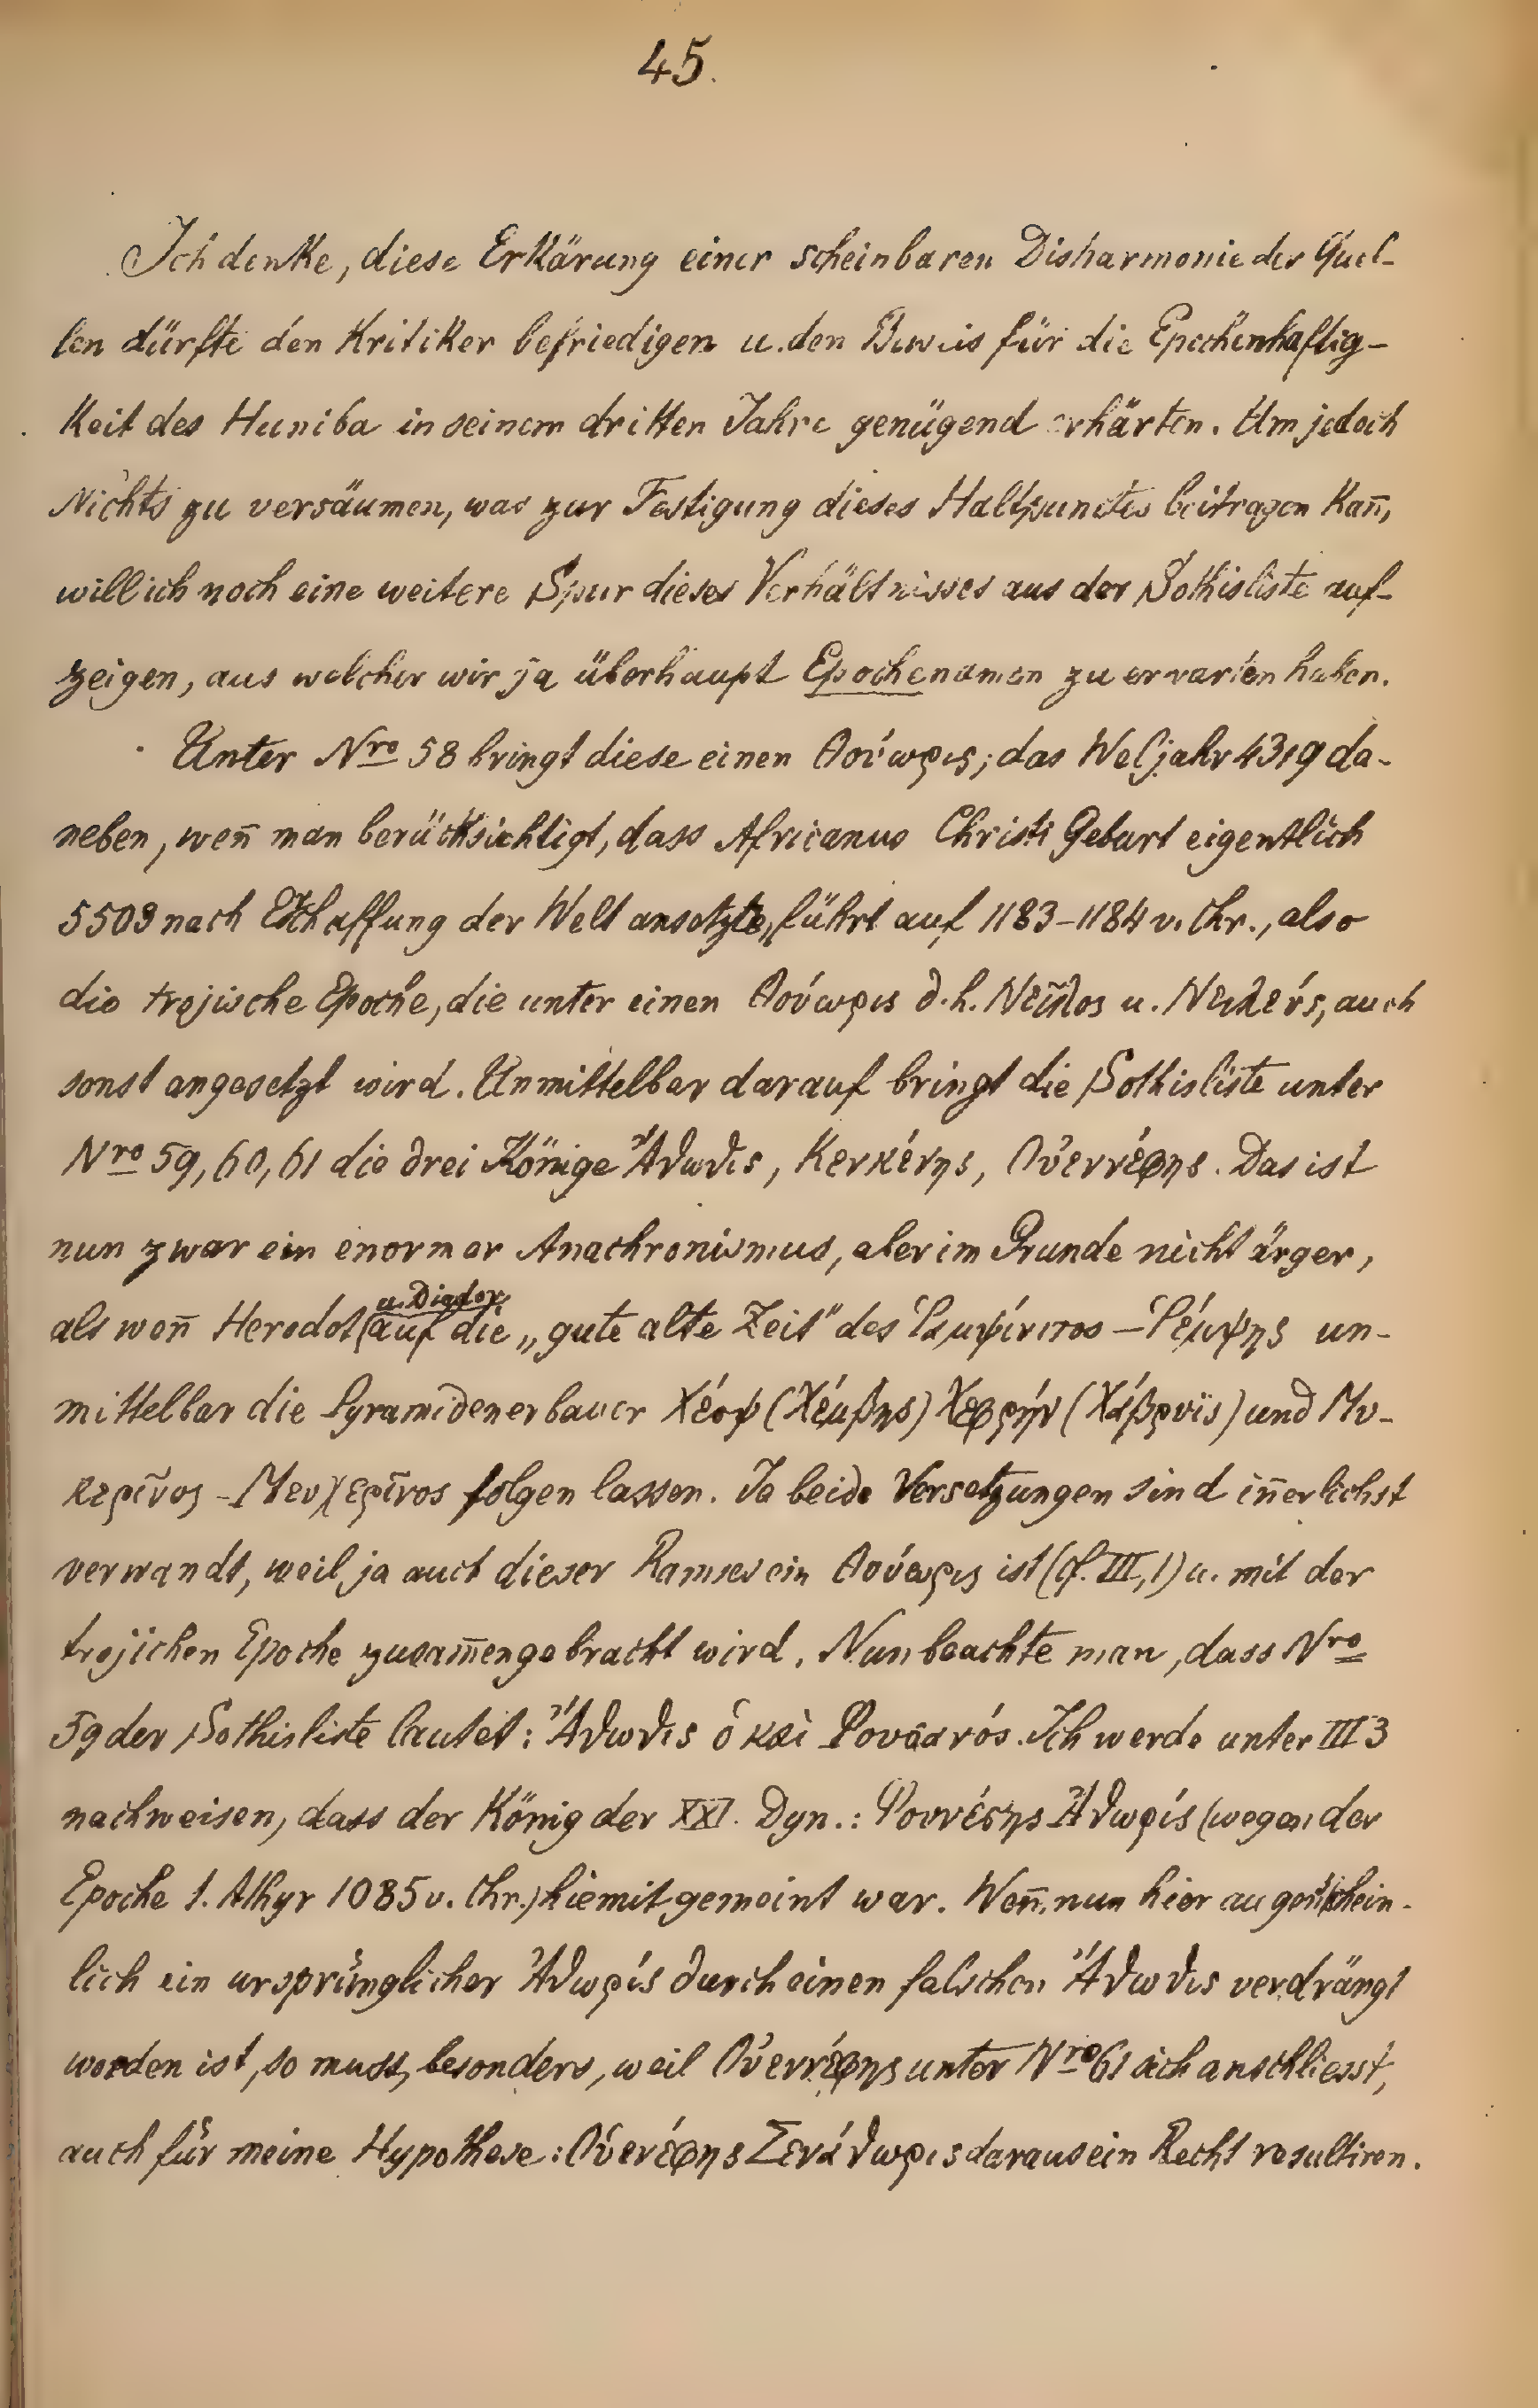 45.
Ich denke, diese Erklärung einer scheinbaren Disharmonie der Quel-
len dürfte den Kritiker befriedigen u. den Beweis für die Epochenhaftig-
keit des Huniba in seinem dritten Jahre genügend erhärten. Um jedoch
Nichts zu versäumen, was zur Festigung dieses Haltpunctes beitragen kan̄,
will ich noch eine weitere Spur dieses Verhältnisses aus der Sothisliste auf-
zeigen, aus welcher wir ja überhaupt Epochenamen zu erwarten haben.
Unter Nro 58 bringt diese einen Θούωρις; das Weljahr 4319 da-
neben, wen̄ man berücksichtigt, dass Africanus Christi Geburt eigentlich
5503 nach Erschaffung der Welt ansetzte, führt auf 1183–1184 v. Chr., also
die trojische Epoche, die unter einen Θούωρις d. h. Νεῖλος u. Νειλεύς, auch
sonst angesetzt wird. Unmittelbar darauf bringt die Sothisliste unter
Nro 59, 60, 61 die drei Könige Ἄθωθις, Κενκένης, Οὐεννέφης. Das ist
nun zwar ein enormer Anachronismus, aber im Grunde nicht ärger,
als wen̄ Herodot (u. Diodor) auf die „gute alte Zeit" des Ῥαμψίνιτος – Ῥέμφης un-
mittelbar die Pyramidenerbauer Χέοψ (Χέμβης) Χεφρήν (Χάβρυϊς) und Μυ-
κερῖνος – Μενχερῖνος folgen lassen. Ja beide Versetzungen sind in̄erlichst
verwandt, weil ja auch dieser Ramses ein Θούωρις ist (cf. III, 1) u. mit der
trojichen Epoche zusam̄engebracht wird. Nun beachte man, dass Nro
59 der Sothisliste lautet: Ἄθωθις ὁ καὶ Φουσανός. Ich werde unter III 3
nachweisen, dass der König der XXI. Dyn.: Ψουσέσης Ἀθωρίς (wegen der
Epoche 1. Athyr 1085 v. Chr.) hiemit gemeint war. Wen̄ nun hier augenschein-
lich ein ursprünglicher Ἀθωρίς durch einen falschen Ἄθωθις verdrängt
worden ist, so muss, besonders, weil Οὐεννέφης unter Nro 61 sich anschliesst,
auch für meine Hypothese: Οὐενέφης Σενάθωρις daraus ein Recht resultiren.